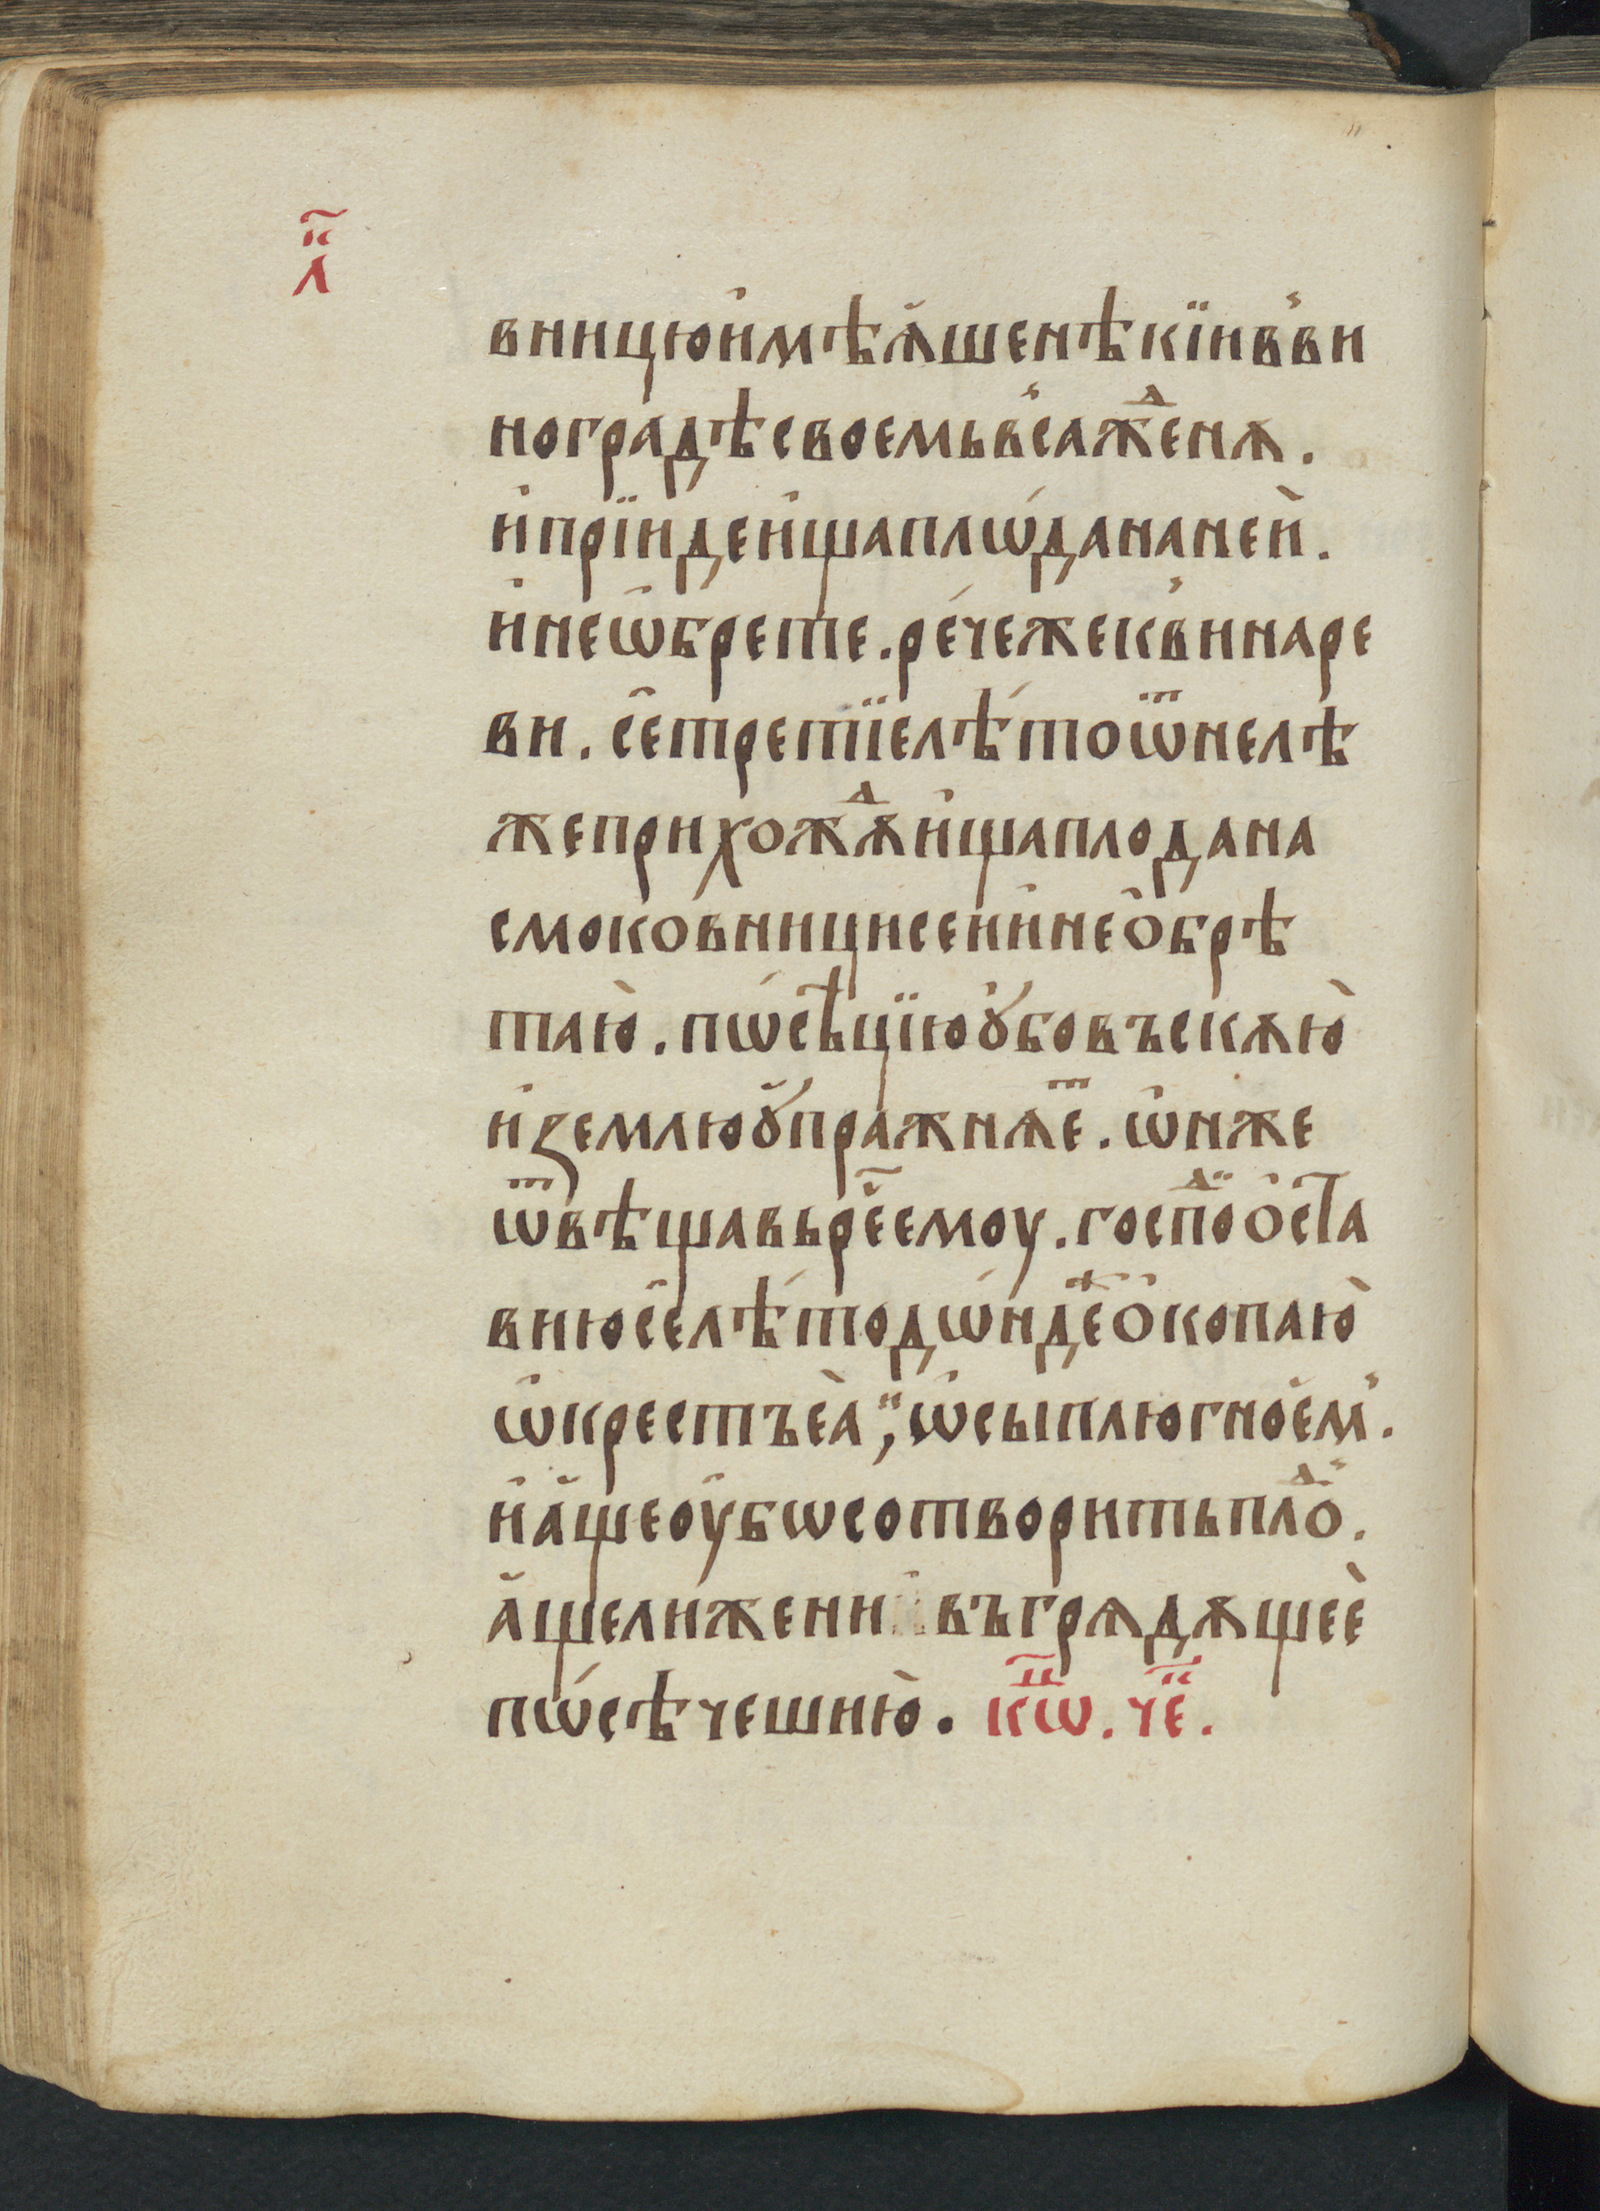 л҃
вницюи҆мѣѧ҆шенѣкїинв̾ви
ноградѣсвоемьв̾саженѧⷣ.
и҆прїидеи҆щаплѡ́дананеѝ.
и҆неѡ҆брете. ре́чежекв̾инаре
ви. се҆третїелѣ́тоѿнелѣ
жеприхожⷣѧи҆щаплодана
смоковницисеии҆нео҆брѣ
таю̀. пѡ́сѣцїюꙋ҆бовъскѫю̀
и҆ꙁемлюꙋ҆пражнѧеⷮ. ѡ҆нже
ѿвѣщавьре҃емоу. госпоⷣо҆ста
июсе҆лѣ́тодѡ́ндеⷤо҆копаю̀
ѡ҆крестъеа̀, и҆ѡ҆сыплюгное҆м̾.
и҆а҆щеоу҆бѡсотворитьплоⷣ.
а҆щелиженивъгрѧдѧщеѐ
пѡ́сѣчешию̀. кѡⷩ҇. че҃.